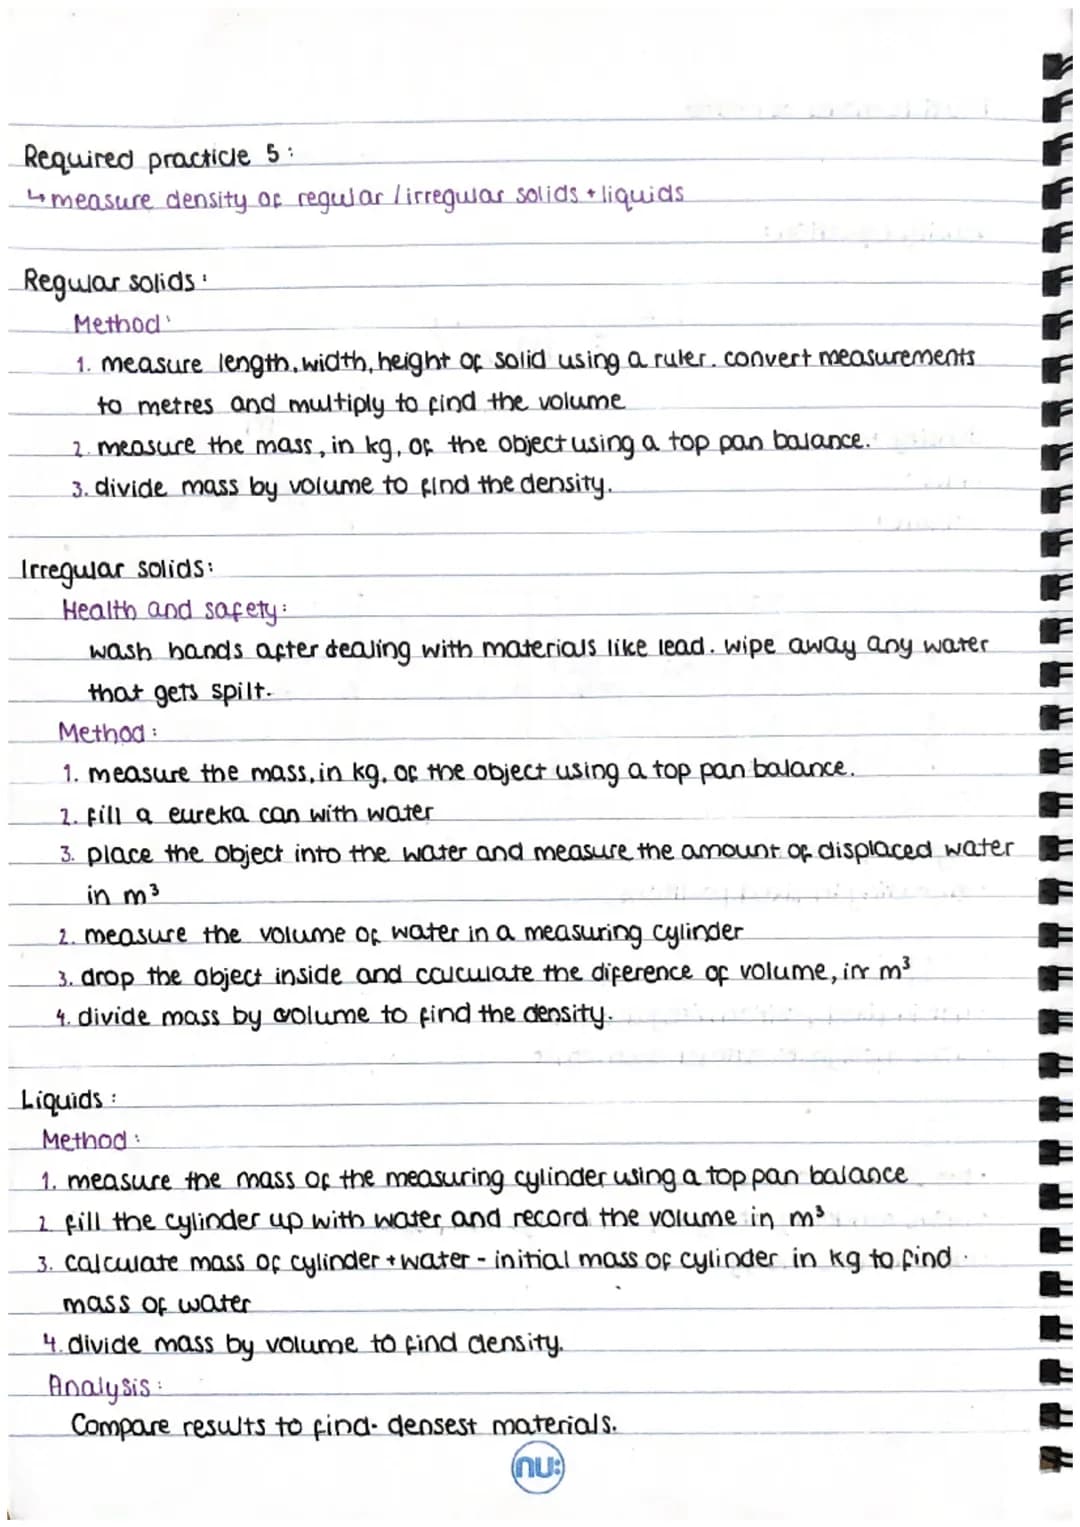 Required practicle 5:
↳ measure density of regular / irregular solids + liquids
Regular solids:
Method:
1. measure length, width, height of solid using a ruler. convert measurements
to metres and multiply to find the volume
2. measure the mass, in kg, of the object using a top pan balance.
3. divide mass by volume to find the density.
Irregular solids:
Health and safety:
wash hands after dealing with materials like lead. wipe away any water
that gets spilt.
Method:
1. measure the mass, in kg, of the object using a top pan balance.
2. fill a eureka can with water
3. place the object into the water and measure the amount of displaced water
in m³
2. measure the volume of water in a measuring cylinder
3. drop the object inside and caculate the diference of volume, in m³
4. divide mass by volume to find the density.
Liquids:
Method:
1. measure the mass of the measuring cylinder using a top pan balance
2 fill the cylinder up with water and record the volume in m³
3. calculate mass of cylinder + water - initial mass of cylinder in kg to find
mass of water
4. divide mass by volume to find density.
Analysis:
Compare results to find densest materials.
nu: